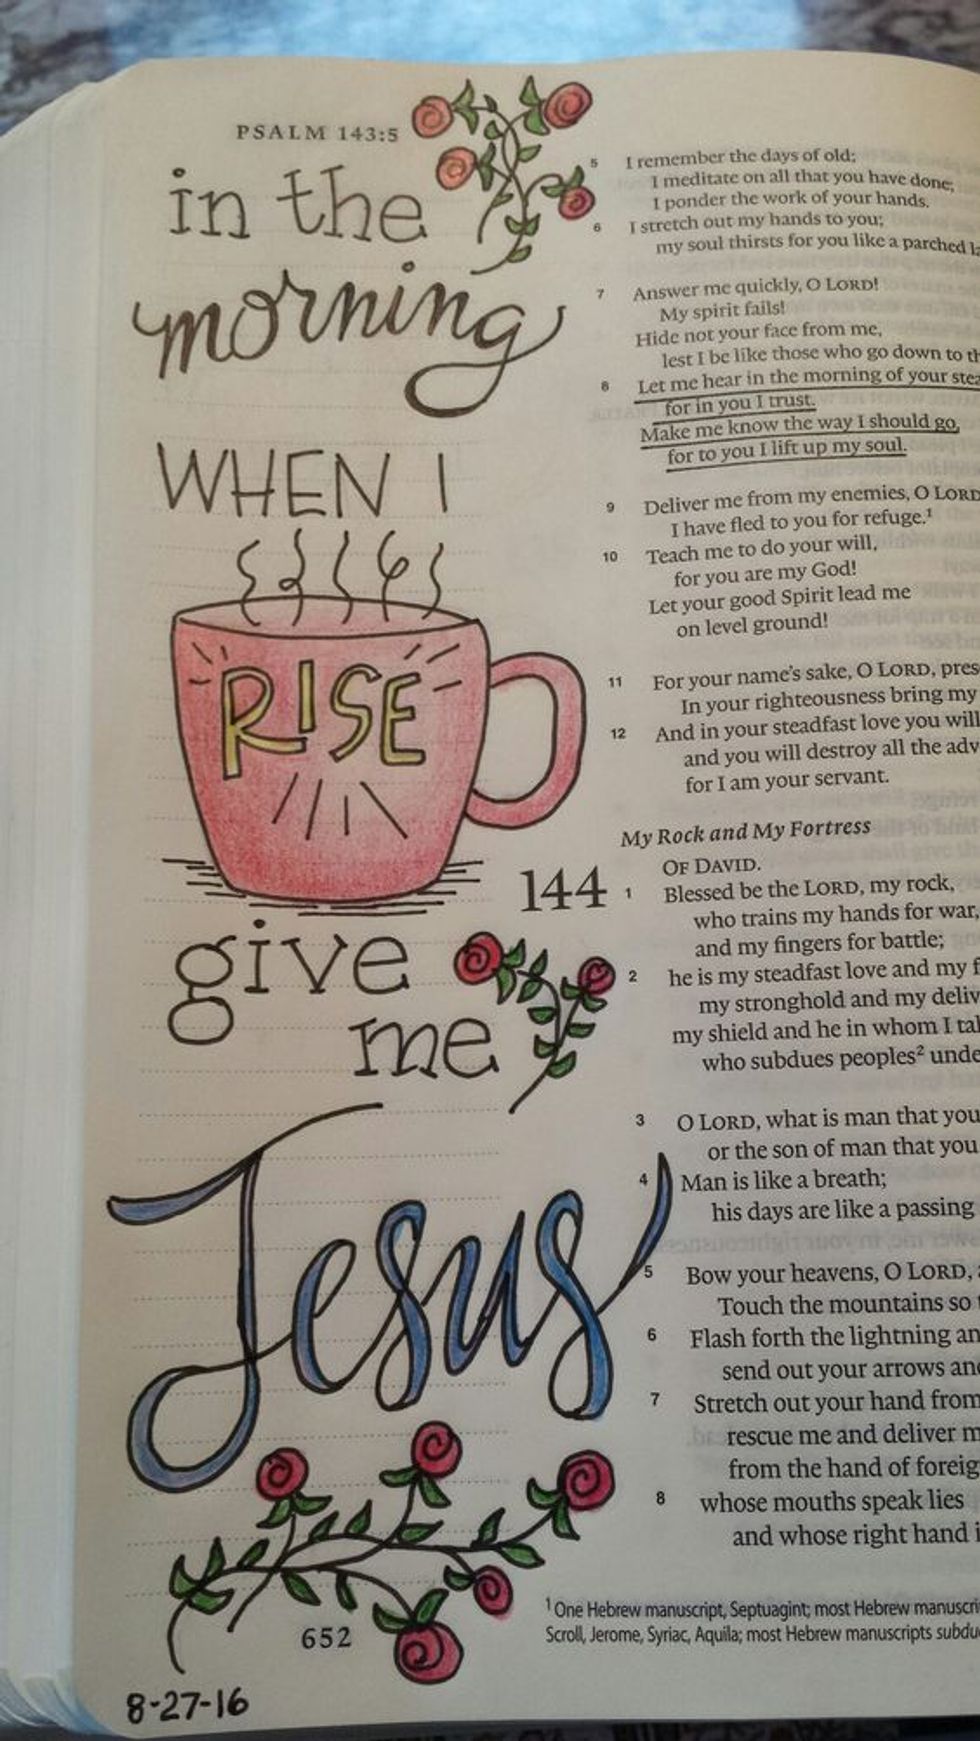 PSALM 143:5
in the
morning
WHEN I
RISE
give
me
Jesus
652
8-27-16
5 I remember the days of old;
I meditate on all that you have done;
I ponder the work of your hands.
6 I stretch out my hands to you;
my soul thirsts for you like a parched
7 Answer me quickly, O LORD!
My spirit fails!
Hide not your face from me,
lest I be like those who go down to
8 Let me hear in the morning of your
for in you I trust.
Make me know the way I should go,
for to you I lift up my soul.
9 Deliver me from my enemies, O LORD
I have fled to you for refuge.¹
10 Teach me to do your will,
for you are my God!
Let your good Spirit lead me
on level ground!
11 For your name's sake, O LORD,
In your righteousness bring my
12 And in your steadfast love you will
and you will destroy all the
for I am your servant.
My Rock and My Fortress
OF DAVID.
144 1 Blessed be the LORD, my rock,
who trains my hands for war,
and my fingers for battle;
2 he is my steadfast love and my
my stronghold and my
my shield and he in whom I
who subdues peoples²
3 O LORD, what is man that you
or the son of man that you
4 Man is like a breath;
his days are like a passing
5 Bow your heavens, O LORD,
Touch the mountains so
6 Flash forth the lightning
send out your arrows
7 Stretch out your hand from
rescue me and deliver
from the hand of
8 whose mouths speak lies
and whose right hand
¹ One Hebrew manuscript, Septuagint; most Hebrew
Scroll, Jerome, Syriac, Aquila; most Hebrew manuscripts